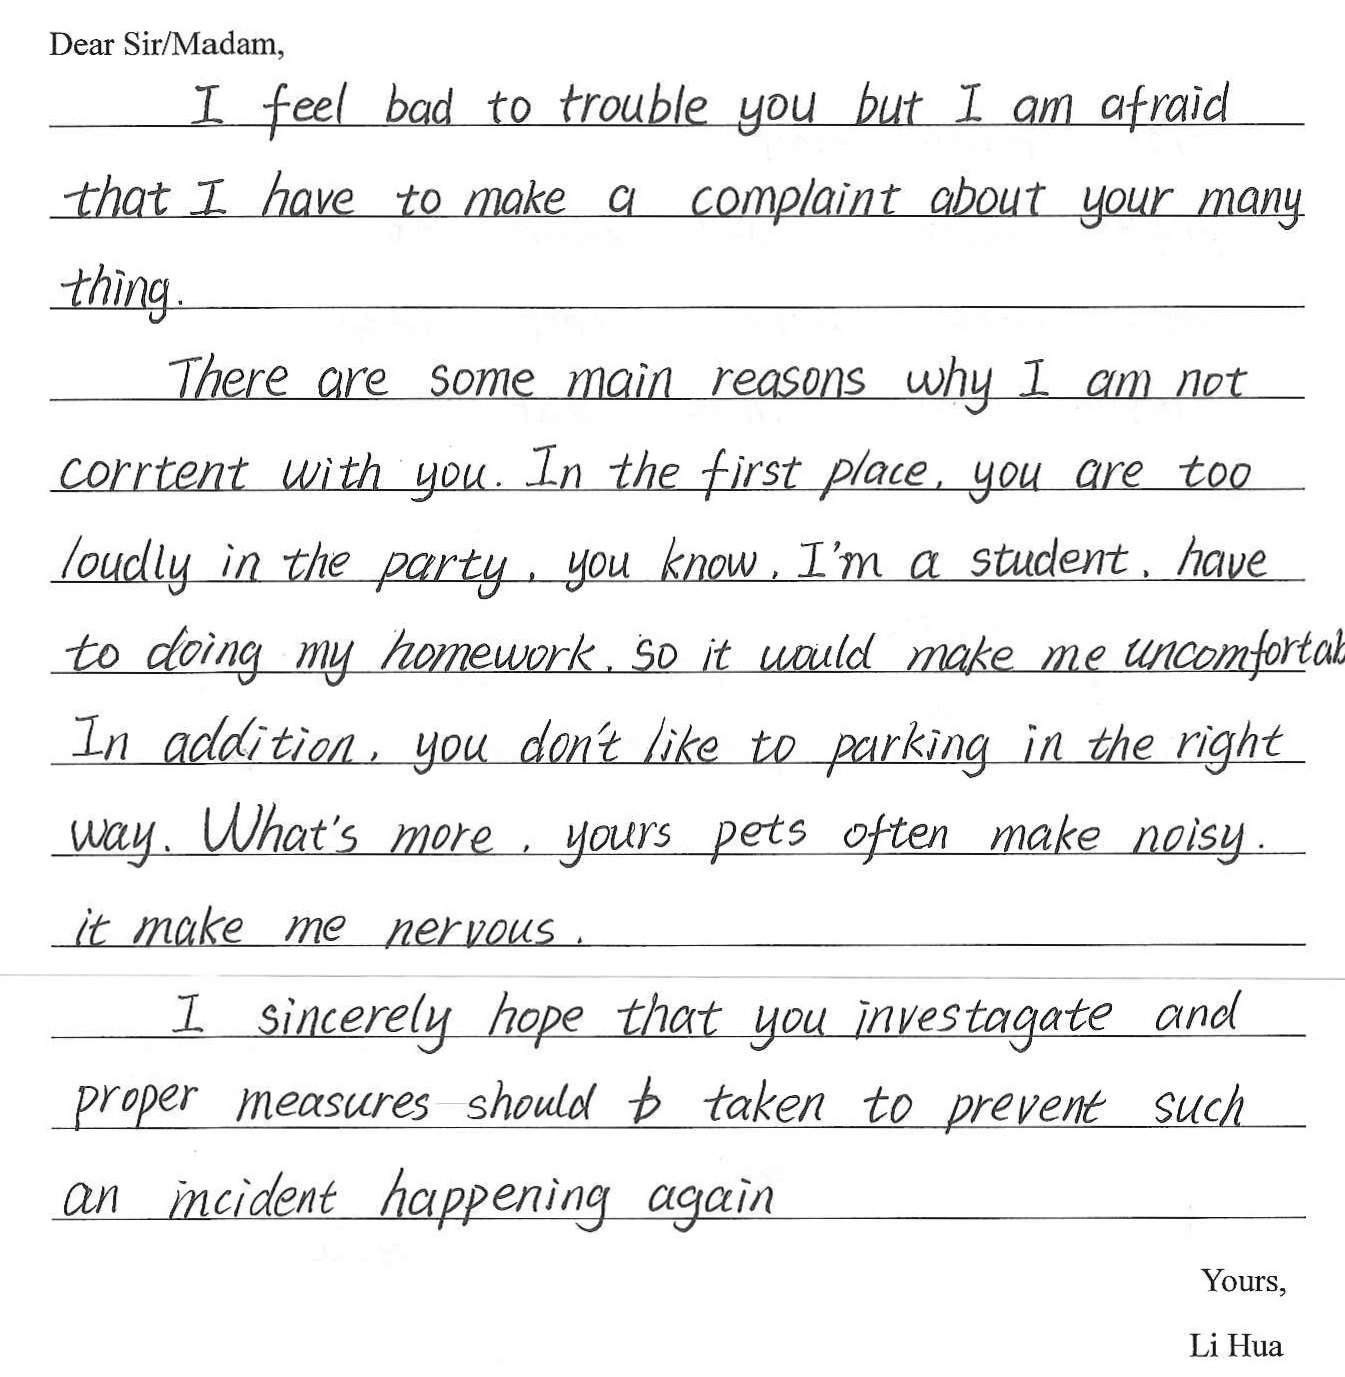 Dear Sir/Madam,
I feel bad to trouble you but I am afraid
that I have to make a complaint about your many
thing.
There are some main reasons why I am not
corrtent with you. In the first place, you are too
loudly in the party, you know, I'm a student, have
to doing my homework, so it would make me uncomfortab
In addition, you don't like to parking in the right
way. What's more, yours pets often make noisy.
it make me nervous.
I sincerely hope that you investagate and
proper measures should b taken to prevent such
an incident happening again
Yours,
Li Hua